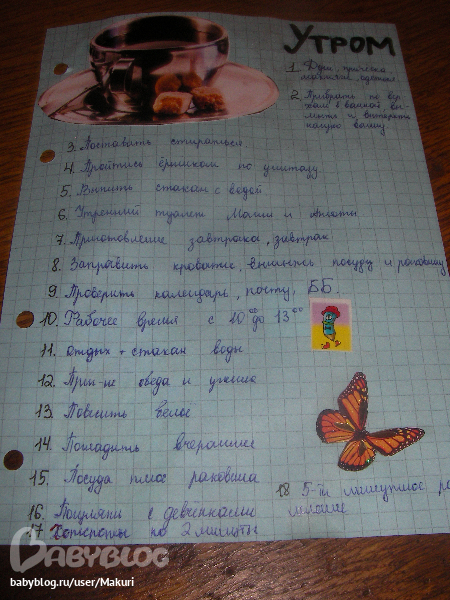 Утром
1. Душ, прическа,
макияж, одежда
2 Прибрать
в ванной
и вытереть
ванну
3. Поставить стираться
4. Пройтись ёршиком по унитазу
5. Выпить стакан с водой
6. Утренний туалет Маши и
7. Приготовление завтрака, завтрак
8. Заправить кровати, вымыть посуду и раковину
9. Проверить календарь, почту, ББ.
10. Рабочее время с 10 00 до 13 00
11. отдых + стакан воды
12. обеда и ужина
13. Повесить белье
14. Погладить вчерашнее
15. Посуда плюс раковина
16. с девчонками
17 по 2 минуты
18 5-ти минутное
BABYBLOG
babyblog.ru/user/Makuri